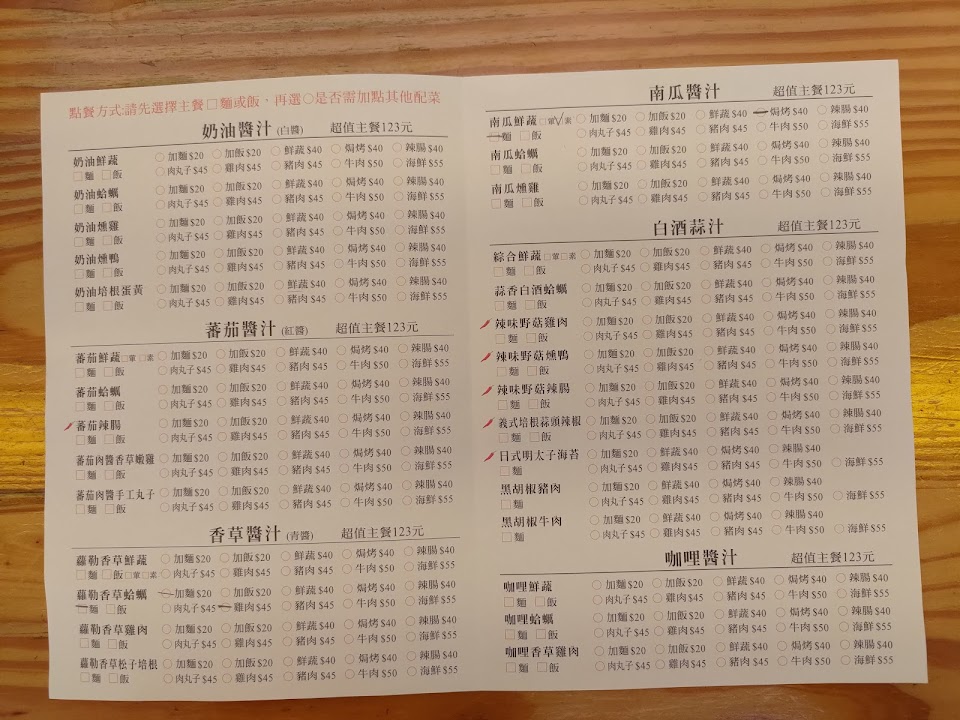 點餐方式:請先選擇主餐□麵或飯，再選○是否需加點其他配菜
奶油醬汁(白醬) 超值主餐123元
奶油鮮蔬 ○加麵$20 ○加飯$20 ○鮮蔬$40 ○焗烤$40 ○辣腸$40
□麵 □飯 ○肉丸子$45 ○雞肉$45 ○豬肉$45 ○牛肉$50 ○海鮮$55
奶油蛤蠣 ○加麵$20 ○加飯$20 ○鮮蔬$40 ○焗烤$40 ○辣腸$40
□麵 □飯 ○肉丸子$45 ○雞肉$45 ○豬肉$45 ○牛肉$50 ○海鮮$55
奶油燻雞 ○加麵$20 ○加飯$20 ○鮮蔬$40 ○焗烤$40 ○辣腸$40
□麵 □飯 ○肉丸子$45 ○雞肉$45 ○豬肉$45 ○牛肉$50 ○海鮮$55
奶油燻鴨 ○加麵$20 ○加飯$20 ○鮮蔬$40 ○焗烤$40 ○辣腸$40
□麵 □飯 ○肉丸子$45 ○雞肉$45 ○豬肉$45 ○牛肉$50 ○海鮮$55
奶油培根蛋黃 ○加麵$20 ○加飯$20 ○鮮蔬$40 ○焗烤$40 ○辣腸$40
□麵 □飯 ○肉丸子$45 ○雞肉$45 ○豬肉$45 ○牛肉$50 ○海鮮$55
蕃茄醬汁(紅醬) 超值主餐123元
蕃茄鮮蔬□葷□素 ○加麵$20 ○加飯$20 ○鮮蔬$40 ○焗烤$40 ○辣腸$40
□麵 □飯 ○肉丸子$45 ○雞肉$45 ○豬肉$45 ○牛肉$50 ○海鮮$55
蕃茄蛤蠣 ○加麵$20 ○加飯$20 ○鮮蔬$40 ○焗烤$40 ○辣腸$40
□麵 □飯 ○肉丸子$45 ○雞肉$45 ○豬肉$45 ○牛肉$50 ○海鮮$55
蕃茄辣腸 ○加麵$20 ○加飯$20 ○鮮蔬$40 ○焗烤$40 ○辣腸$40
□麵 □飯 ○肉丸子$45 ○雞肉$45 ○豬肉$45 ○牛肉$50 ○海鮮$55
蕃茄肉醬香草嫩雞 ○加麵$20 ○加飯$20 ○鮮蔬$40 ○焗烤$40 ○辣腸$40
□麵 □飯 ○肉丸子$45 ○雞肉$45 ○豬肉$45 ○牛肉$50 ○海鮮$55
蕃茄肉醬手工丸子 ○加麵$20 ○加飯$20 ○鮮蔬$40 ○焗烤$40 ○辣腸$40
□麵 □飯 ○肉丸子$45 ○雞肉$45 ○豬肉$45 ○牛肉$50 ○海鮮$55
香草醬汁(青醬) 超值主餐123元
蘿勒香草鮮蔬 ○加麵$20 ○加飯$20 ○鮮蔬$40 ○焗烤$40 ○辣腸$40
□麵 □飯□葷□素 ○肉丸子$45 ○雞肉$45 ○豬肉$45 ○牛肉$50 ○海鮮$55
蘿勒香草蛤蠣 ○加麵$20 ○加飯$20 ○鮮蔬$40 ○焗烤$40 ○辣腸$40
□麵 □飯 ○肉丸子$45 ○雞肉$45 ○豬肉$45 ○牛肉$50 ○海鮮$55
蘿勒香草雞肉 ○加麵$20 ○加飯$20 ○鮮蔬$40 ○焗烤$40 ○辣腸$40
□麵 □飯 ○肉丸子$45 ○雞肉$45 ○豬肉$45 ○牛肉$50 ○海鮮$55
蘿勒香草松子培根 ○加麵$20 ○加飯$20 ○鮮蔬$40 ○焗烤$40 ○辣腸$40
□麵 □飯 ○肉丸子$45 ○雞肉$45 ○豬肉$45 ○牛肉$50 ○海鮮$55
南瓜醬汁 超值主餐123元
南瓜鮮蔬□葷□素 ○加麵$20 ○加飯$20 ○鮮蔬$40 ○焗烤$40 ○辣腸$40
□麵 □飯 ○肉丸子$45 ○雞肉$45 ○豬肉$45 ○牛肉$50 ○海鮮$55
南瓜蛤蠣 ○加麵$20 ○加飯$20 ○鮮蔬$40 ○焗烤$40 ○辣腸$40
□麵 □飯 ○肉丸子$45 ○雞肉$45 ○豬肉$45 ○牛肉$50 ○海鮮$55
南瓜燻雞 ○加麵$20 ○加飯$20 ○鮮蔬$40 ○焗烤$40 ○辣腸$40
□麵 □飯 ○肉丸子$45 ○雞肉$45 ○豬肉$45 ○牛肉$50 ○海鮮$55
白酒蒜汁 超值主餐123元
綜合鮮蔬□葷□素 ○加麵$20 ○加飯$20 ○鮮蔬$40 ○焗烤$40 ○辣腸$40
□麵 □飯 ○肉丸子$45 ○雞肉$45 ○豬肉$45 ○牛肉$50 ○海鮮$55
蒜香白酒蛤蠣 ○加麵$20 ○加飯$20 ○鮮蔬$40 ○焗烤$40 ○辣腸$40
□麵 □飯 ○肉丸子$45 ○雞肉$45 ○豬肉$45 ○牛肉$50 ○海鮮$55
辣味野菇雞肉 ○加麵$20 ○加飯$20 ○鮮蔬$40 ○焗烤$40 ○辣腸$40
□麵 □飯 ○肉丸子$45 ○雞肉$45 ○豬肉$45 ○牛肉$50 ○海鮮$55
辣味野菇燻鴨 ○加麵$20 ○加飯$20 ○鮮蔬$40 ○焗烤$40 ○辣腸$40
□麵 □飯 ○肉丸子$45 ○雞肉$45 ○豬肉$45 ○牛肉$50 ○海鮮$55
辣味野菇辣腸 ○加麵$20 ○加飯$20 ○鮮蔬$40 ○焗烤$40 ○辣腸$40
□麵 □飯 ○肉丸子$45 ○雞肉$45 ○豬肉$45 ○牛肉$50 ○海鮮$55
義式培根蒜頭辣根 ○加麵$20 ○加飯$20 ○鮮蔬$40 ○焗烤$40 ○辣腸$40
□麵 □飯 ○肉丸子$45 ○雞肉$45 ○豬肉$45 ○牛肉$50 ○海鮮$55
日式明太子海苔 ○加麵$20 ○鮮蔬$40 ○焗烤$40 ○辣腸$40
□麵 ○肉丸子$45 ○雞肉$45 ○豬肉$45 ○牛肉$50 ○海鮮$55
黑胡椒豬肉 ○加麵$20 ○鮮蔬$40 ○焗烤$40 ○辣腸$40
□麵 ○肉丸子$45 ○雞肉$45 ○豬肉$45 ○牛肉$50 ○海鮮$55
黑胡椒牛肉 ○加麵$20 ○鮮蔬$40 ○焗烤$40 ○辣腸$40
□麵 ○肉丸子$45 ○雞肉$45 ○豬肉$45 ○牛肉$50 ○海鮮$55
咖哩醬汁 超值主餐123元
咖哩鮮蔬 ○加麵$20 ○加飯$20 ○鮮蔬$40 ○焗烤$40 ○辣腸$40
□麵 □飯 ○肉丸子$45 ○雞肉$45 ○豬肉$45 ○牛肉$50 ○海鮮$55
咖哩蛤蠣 ○加麵$20 ○加飯$20 ○鮮蔬$40 ○焗烤$40 ○辣腸$40
□麵 □飯 ○肉丸子$45 ○雞肉$45 ○豬肉$45 ○牛肉$50 ○海鮮$55
咖哩香草雞肉 ○加麵$20 ○加飯$20 ○鮮蔬$40 ○焗烤$40 ○辣腸$40
□麵 □飯 ○肉丸子$45 ○雞肉$45 ○豬肉$45 ○牛肉$50 ○海鮮$55